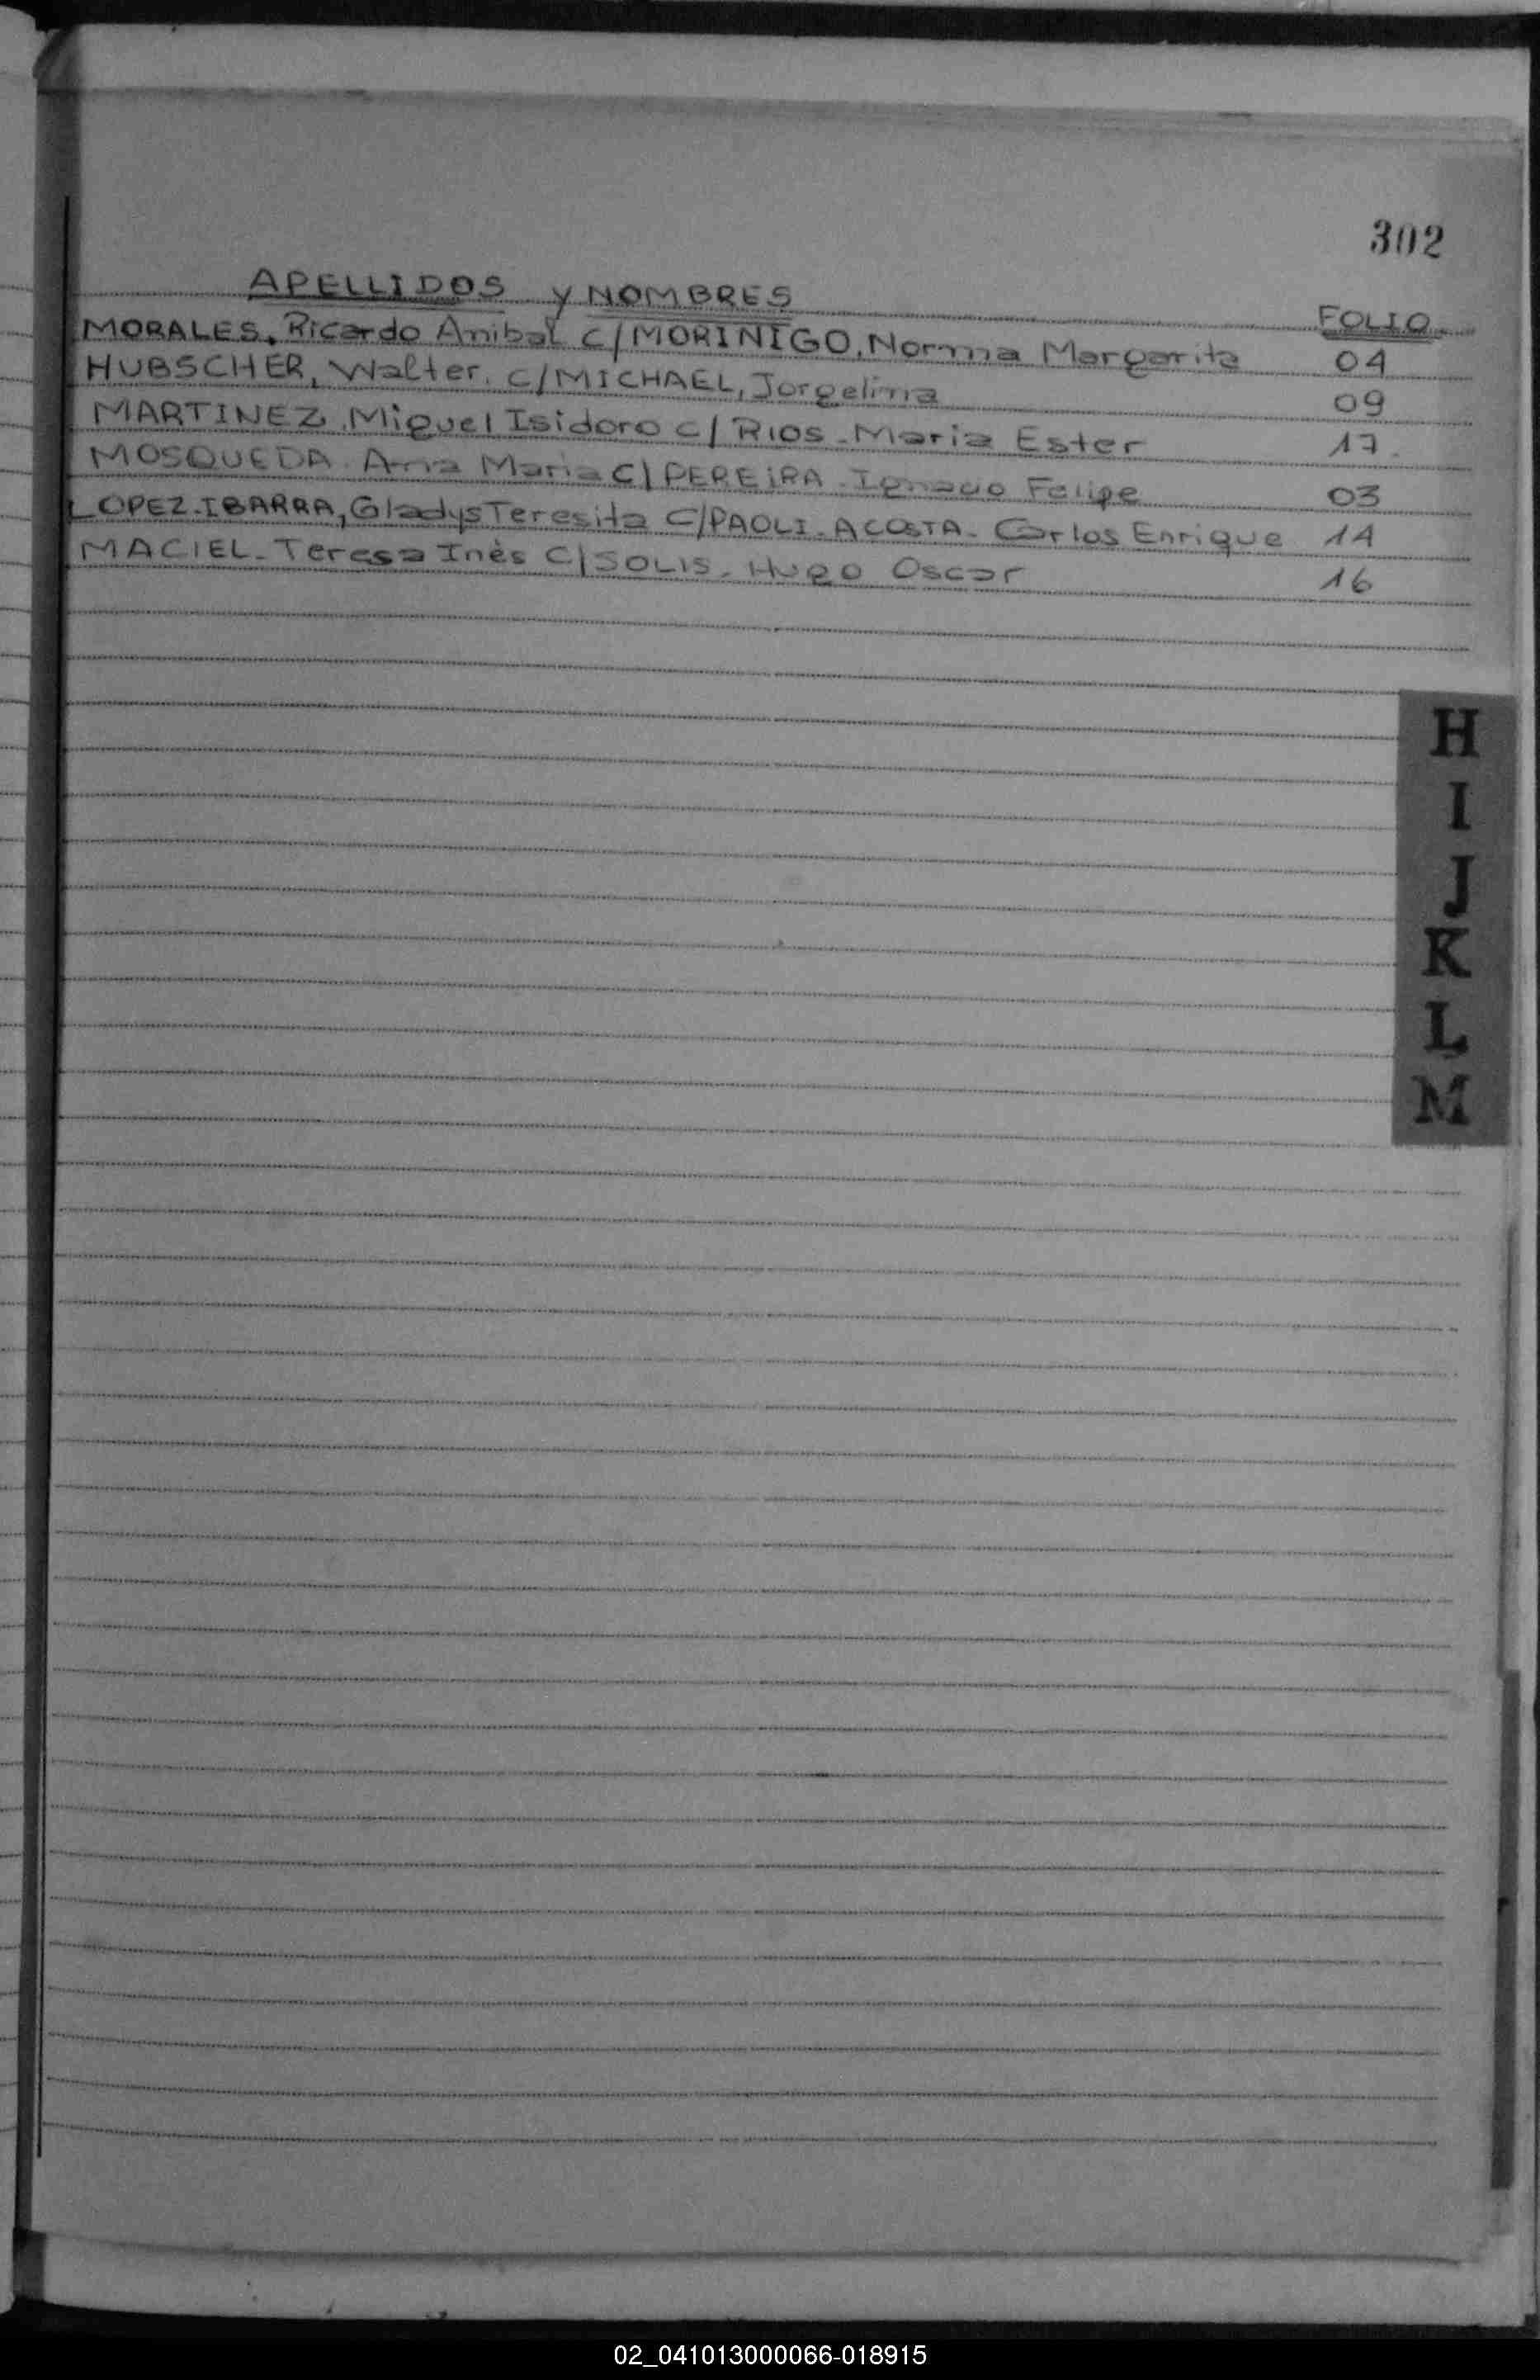 302
APELLIDOS Y NOMBRES FOLIO
MORALES, Ricardo Anibal C/MORINIGO, Norma Margarita 04
HUBSCHER, Walter. C/MICHAEL, Jorgelina 09
MARTINEZ, Miguel Isidoro C/ RIOS - Maria Ester 17
MOSQUEDA. Ana Maria C/PEREIRA - Ignacio Felipe 03
LOPEZ-IBARRA, Gladys Teresita C/PAOLI-ACOSTA- Carlos Enrique 14
MACIEL- Teresa Inés C/SOLIS- Hugo Oscar 16
H
I
J
K
L
M
02_041013000066-018915